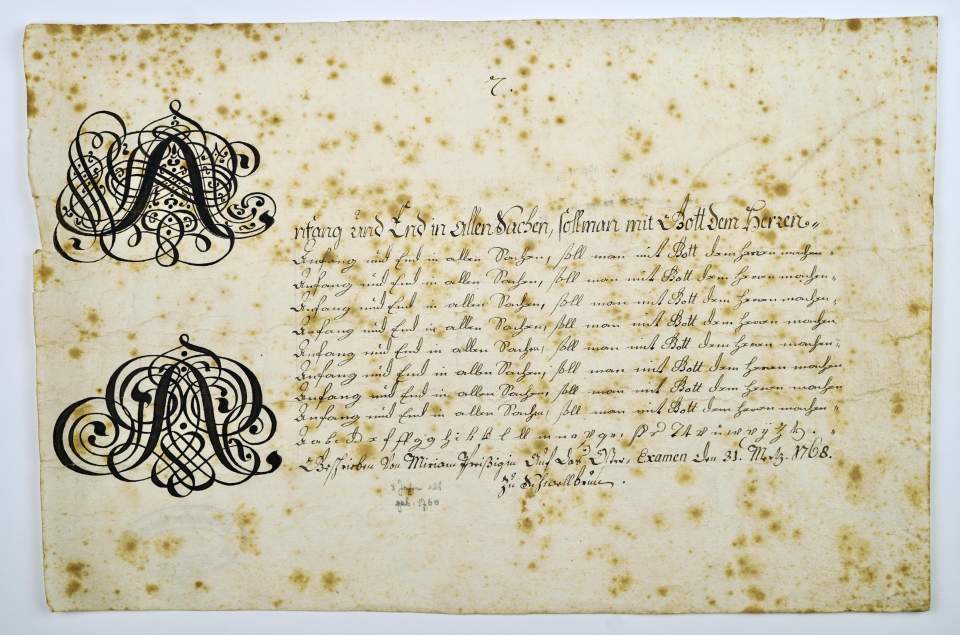 7.
Anfang und End in allen Sachen, soll man mit Gott dem Herren
Anfang und End in allen Sachen, soll man mit Gott dem Herren machen
Anfang und End in allen Sachen, soll man mit Gott dem Herren machen
Anfang und End in allen Sachen, soll man mit Gott dem Herren machen
Anfang und End in allen Sachen, soll man mit Gott dem Herren machen
A Anfang und End in allen Sachen, soll man mit Gott dem Herren machen
Anfang und End in allen Sachen, soll man mit Gott dem Herren machen
Anfang und End in allen Sachen, soll man mit Gott dem Herren machen
Anfang und End in allen Sachen, soll man mit Gott dem Herren machen
Geschrieben von Miriam Preißigin Auf das Oster, Examen den 31. Mertz. 1768.
zu Schwellbrun.
8 Jahre alt
geb. 1760